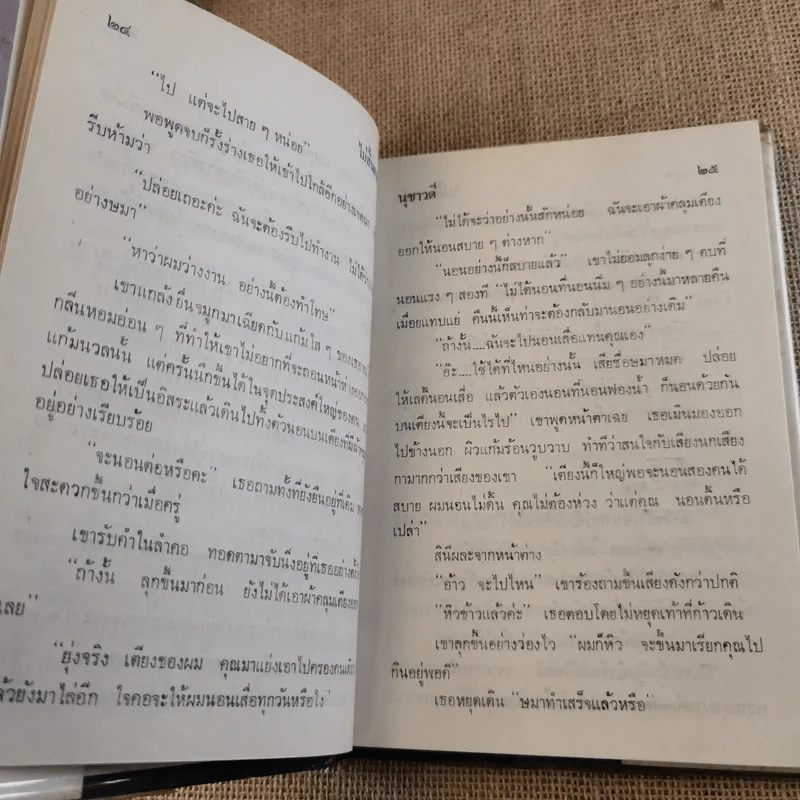 ๒๔
“ไป แต่จะไปสาย ๆ หน่อย”
พอพูดจบก็รั้งร่างเธอให้เข้าไปใกล้อีกอย่าง
รีบห้ามว่า
“ปล่อยเถอะค่ะ ฉันจะต้องรีบไปทำงาน
อย่างษมา”
“หาว่าผมว่างงาน อย่างนี้ต้องทำโทษ”
เขาแกล้งยื่นจมูกมาเฉียดกับแก้มใส ๆ ของเธอ
กลิ่นหอมอ่อน ๆ ที่ทำให้เขาไม่อยากที่จะถอนหน้าห่าง
แก้มนวลนั้น แต่ครั้นนึกขึ้นได้ในจุดประสงค์ใหญ่ของตน
ปล่อยเธอให้เป็นอิสระแล้วเดินไปทิ้งตัวนอนบนเตียงที่มี
อยู่อย่างเรียบร้อย
“จะนอนต่อหรือคะ” เธอถามทั้งที่ยังยืนอยู่ที่เดิม
ใจสะดวกขึ้นกว่าเมื่อครู่
เขารับคำในลำคอ ทอดตามาจับนิ่งอยู่ที่เธออย่าง
“ถ้างั้น ลุกขึ้นมาก่อน ยังไม่ได้เอาผ้าคลุมเตียง
เลย”
“ยุ่งจริง เตียงของผม คุณมาแย่งเอาไปครอง
ยังมาไล่อีก ใจคอจะให้ผมนอนเสื่อทุกวันหรือไง”
นุชาวดี
๒๕
“ไม่ได้จะว่าอย่างนั้นสักหน่อย ฉันจะเอาผ้าคลุมเตียง
ออกให้นอนสบาย ๆ ต่างหาก”
“นอนอย่างนี้ก็สบายแล้ว” เขาไม่ยอมลุกง่าย ๆ ตบที่
นอนแรง ๆ สองที “ไม่ได้นอนที่นอนนิ่ม ๆ อย่างนี้มาหลายคืน
เมื่อยแทบแย่ คืนนี้เห็นท่าจะต้องกลับมานอนอย่างเดิม”
“ถ้างั้น....ฉันจะไปนอนเสื่อแทนคุณเอง”
“อ๊ะ....ใช้ได้ที่ไหนอย่างนั้น เสียชื่อษมาหมด ปล่อย
ให้เลดี้นอนเสื่อ แล้วตัวเองนอนที่นอนฟองน้ำ ก็นอนด้วยกัน
บนเตียงนี้จะเป็นไรไป” เขาพูดหน้าตาเฉย เธอเมินมองออก
ไปข้างนอก ผิวแก้มร้อนวูบวาบ ทำทีว่าสนใจกับเสียงนกเสียง
กามากกว่าเสียงของเขา “เตียงนี้ก็ใหญ่พอจะนอนสองคนได้
สบาย ผมนอนไม่ดิ้น คุณไม่ต้องห่วง ว่าแต่คุณ นอนดิ้นหรือ
เปล่า”
สินีผละจากหน้าต่าง
“อ้าว จะไปไหน” เขาร้องถามขึ้นเสียงดังกว่าปกติ
“หิวข้าวแล้วค่ะ” เธอตอบโดยไม่หยุดเท้าที่ก้าวเดิน
เขาลุกขึ้นอย่างว่องไว “ผมก็หิว จะขึ้นมาเรียกคุณไป
กินอยู่พอดี”
เธอหยุดเดิน “ษมาทำเสร็จแล้วหรือ”